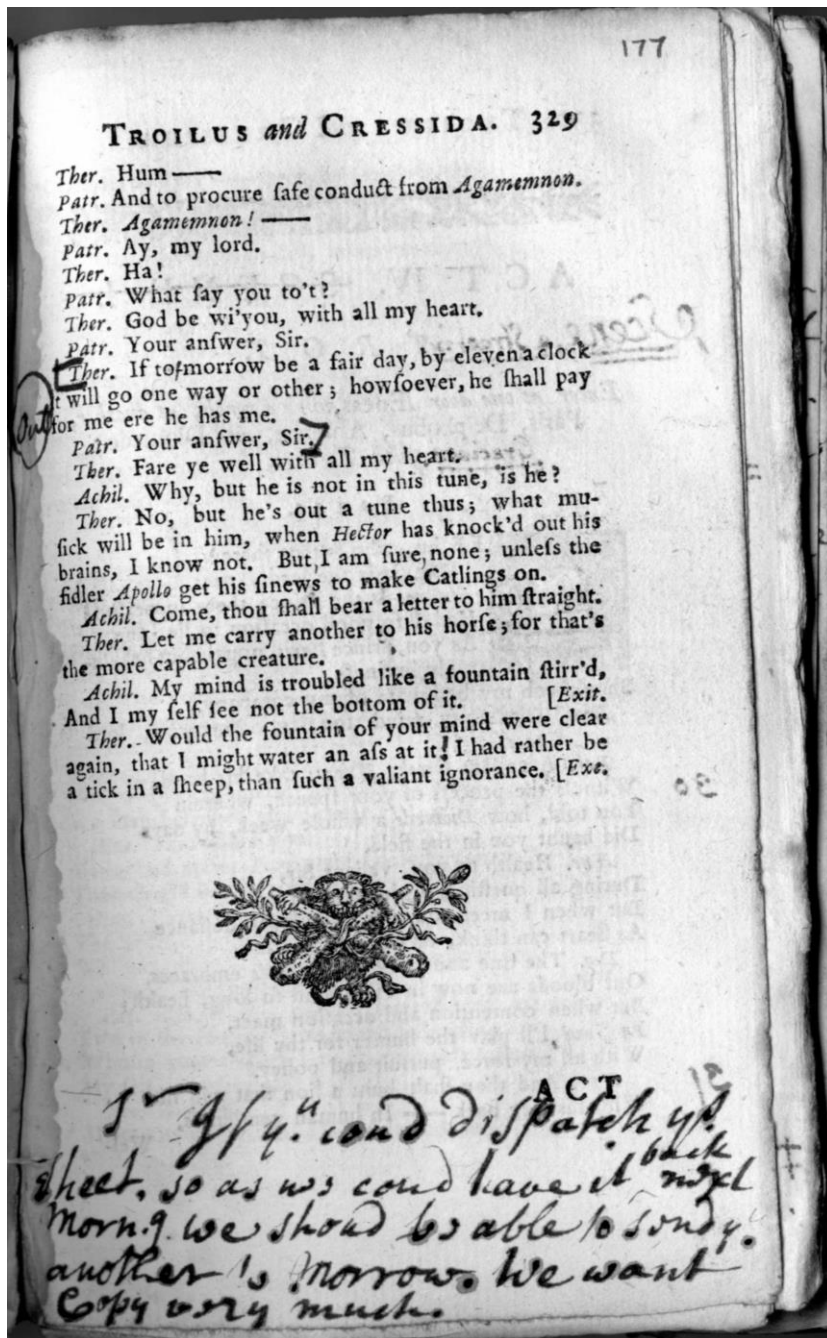 177
TROILUS and CRESSIDA. 329
Ther. Hum ——
Patr. And to procure ſafe conduct from Agamemnon.
Ther. Agamemnon! ——
Patr. Ay, my lord.
Ther. Ha!
Patr. What ſay you to't?
Ther. God be wi'you, with all my heart.
Patr. Your anſwer, Sir.
Ther. If to morrow be a fair day, by eleven a clock
it will go one way or other; howſoever, he ſhall pay
Out
for me ere he has me.
Patr. Your anſwer, Sir.
Ther. Fare ye well with all my heart.
Achil. Why, but he is not in this tune, is he?
Ther. No, but he's out a tune thus; what mu-
ſick will be in him, when Hector has knock'd out his
brains, I know not. But, I am ſure, none; unleſs the
fidler Apollo get his ſinews to make Catlings on.
Achil. Come, thou ſhall bear a letter to him ſtraight.
Ther. Let me carry another to his horſe; for that's
the more capable creature.
Achil. My mind is troubled like a fountain ſtirr'd,
And I my ſelf ſee not the bottom of it. [Exit.
Ther. Would the fountain of your mind were clear
again, that I might water an aſs at it! I had rather be
a tick in a ſheep, than ſuch a valiant ignorance. [Exe.
ACT
Sr If yu. coud dispatch ys.
Sheet, so as we coud have it back next
Morng. we shoud be able to send yu.
another to Morrow. We want
Copy very much.